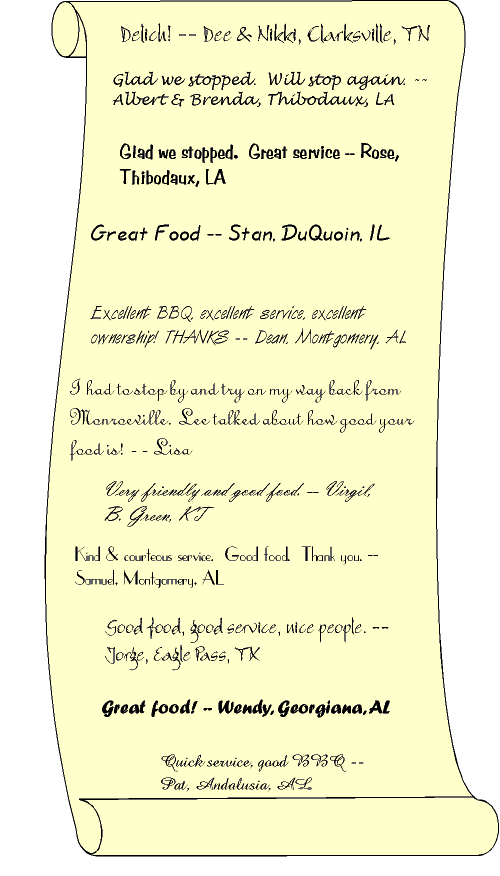 Delich! -- Dee & Nikki, Clarksville, TN
Glad we stopped. Will stop again. --
Albert & Brenda, Thibodaux, LA
Glad we stopped. Great service -- Rose,
Thibodaux, LA
Great Food -- Stan, DuQuoin, IL
Excellent BBQ, excellent service, excellent
ownership! THANKS -- Dean, Montgomery, AL
I had to stop by and try on my way back from
Monroeville. Lee talked about how good your
food is! - - Lisa
Very friendly and good food. -- Virgil,
B. Green, KT
Kind & courteous service. Good food. Thank you. --
Samuel, Montgomery, AL
Good food, good service, nice people. --
Jorge, Eagle Pass, TX
Great food! -- Wendy, Georgiana, AL
Quick service, good BBQ --
Pat, Andalusia, AL